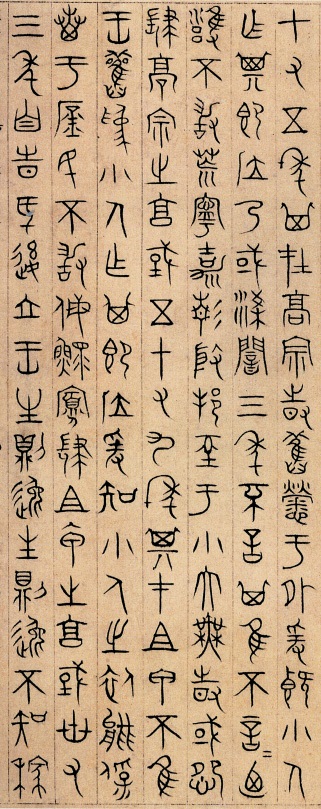 十又五年其在高宗時舊勞于外爰暨小人
作其即位乃或諒闇三年不言其惟不言=乃
雍不敢荒寧嘉靖殷邦至于小大無時或怨
肆高宗之享國五十又九年其在祖甲不惟
王舊為小人作其即位爰知小人之依能保
惠于庶民不敢侮鰥寡肆祖甲之享國卅又
三年自時厥後立王生則逸生則逸不知稼